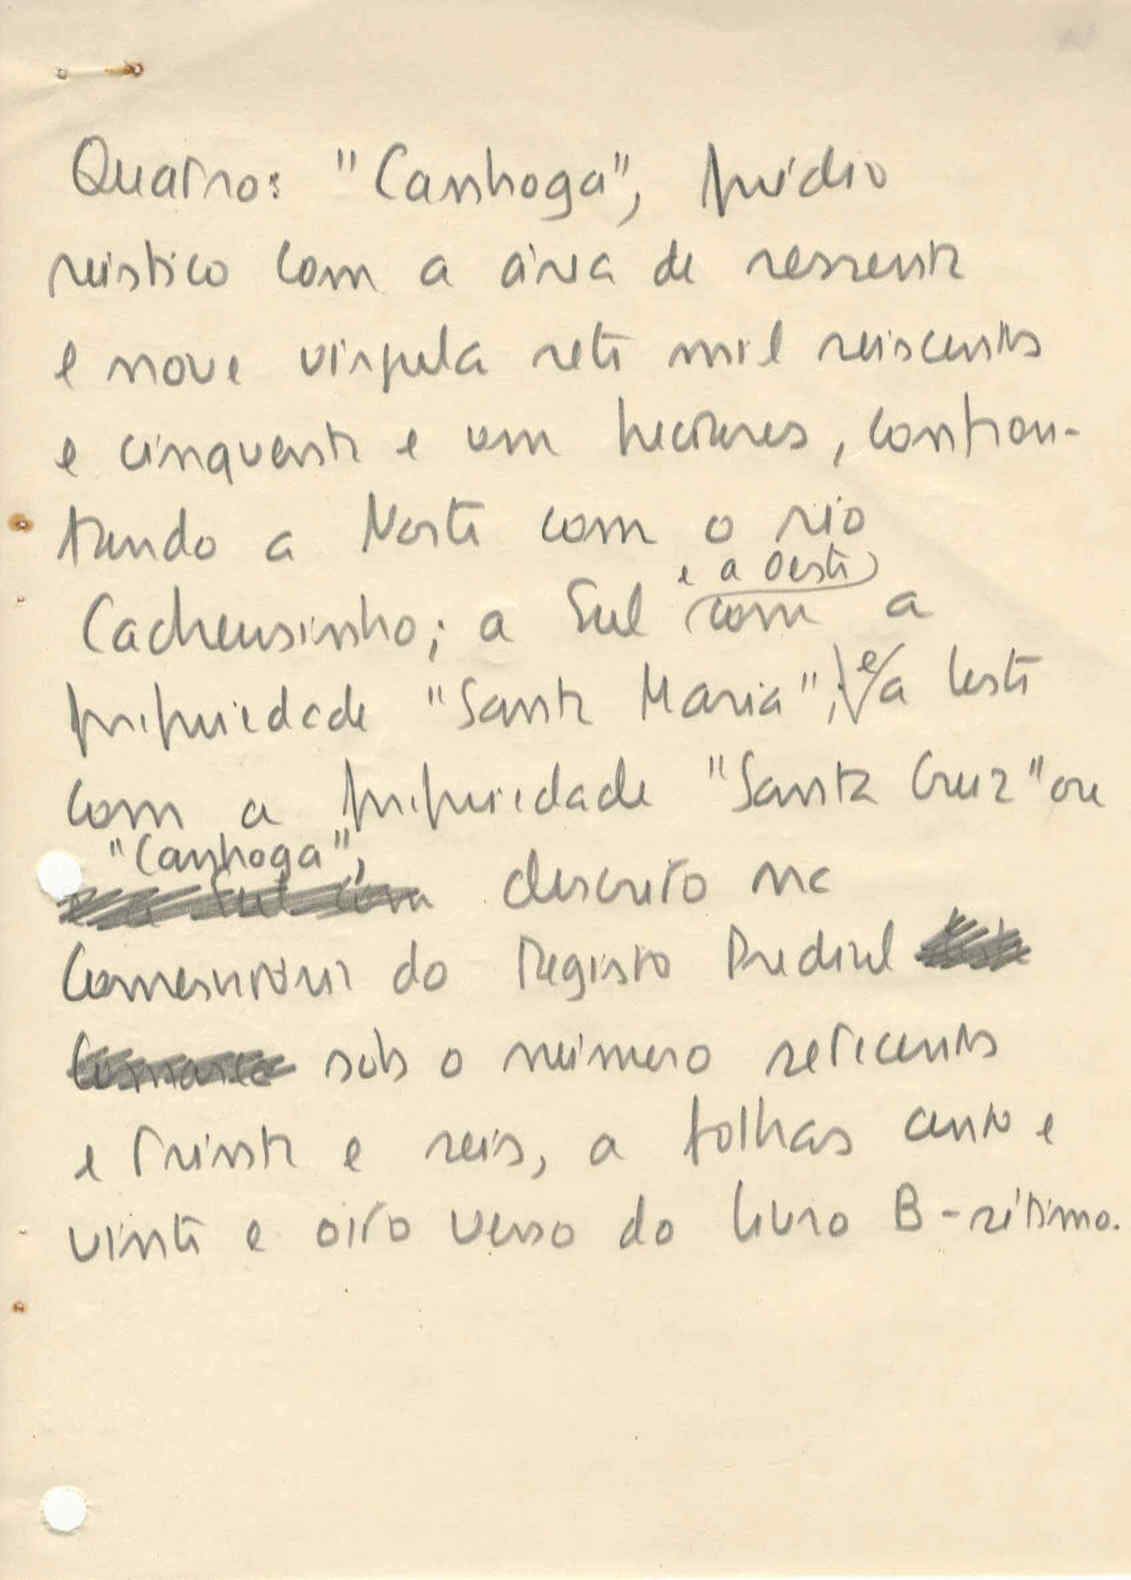 Quatro: "Canhoga", prédio
rústico com a área de sessenta
e nove vírgula sete mil seiscentos
e cinquenta e um hectares, confron-
tando a Norte com o rio
e a Oeste
Cacheusinho; a Sul com a
propriedade "Santa Maria"; e a Leste
com a propriedade "Santa Cruz" ou
"Canhoga",
e a Sul com descrito na
Conservatória do Registo Predial
Comarca sob o número setecentos
e trinta e seis, a folhas cento e
vinte e oito verso do livro B-sétimo.